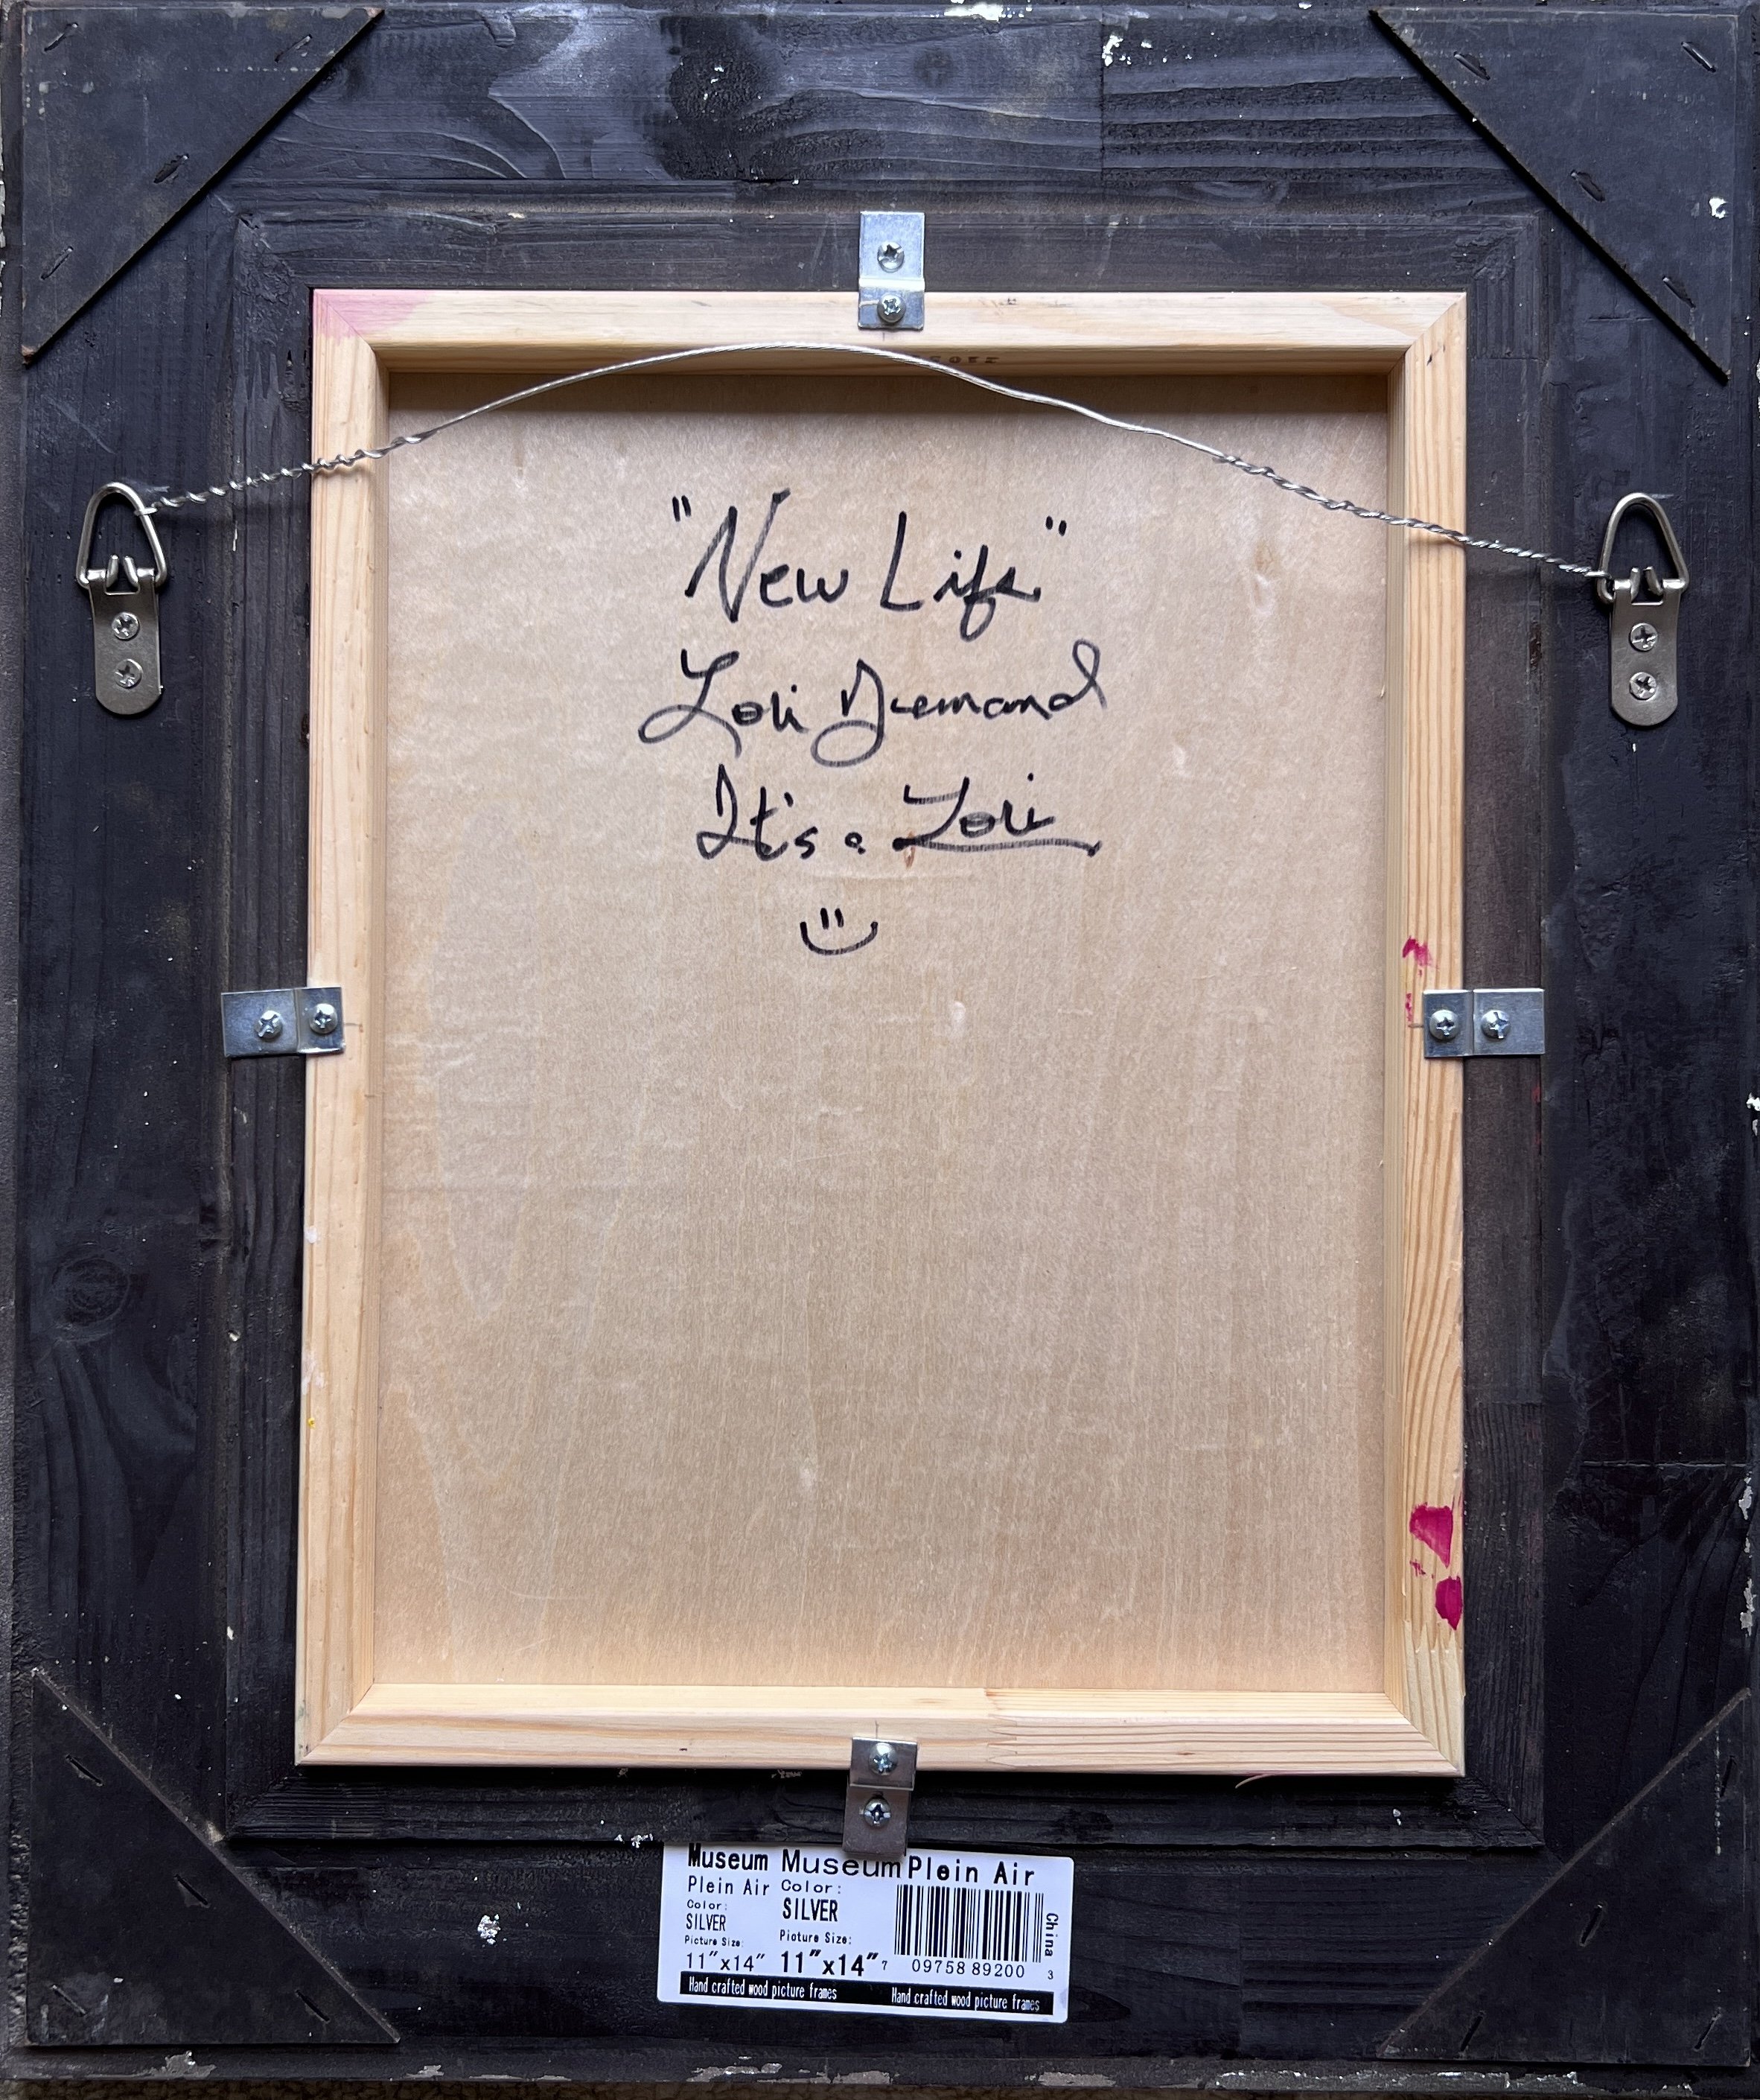 "New Life"
Lori Diemand
It's a Lori
Museum Museum Plein Air
Plein Air Color:
Color: SILVER
SILVER
Picture Size: Picture Size:
11"x14" 11"x14"
7 09758 89200 3
China
Hand crafted wood picture frames Hand crafted wood picture frames